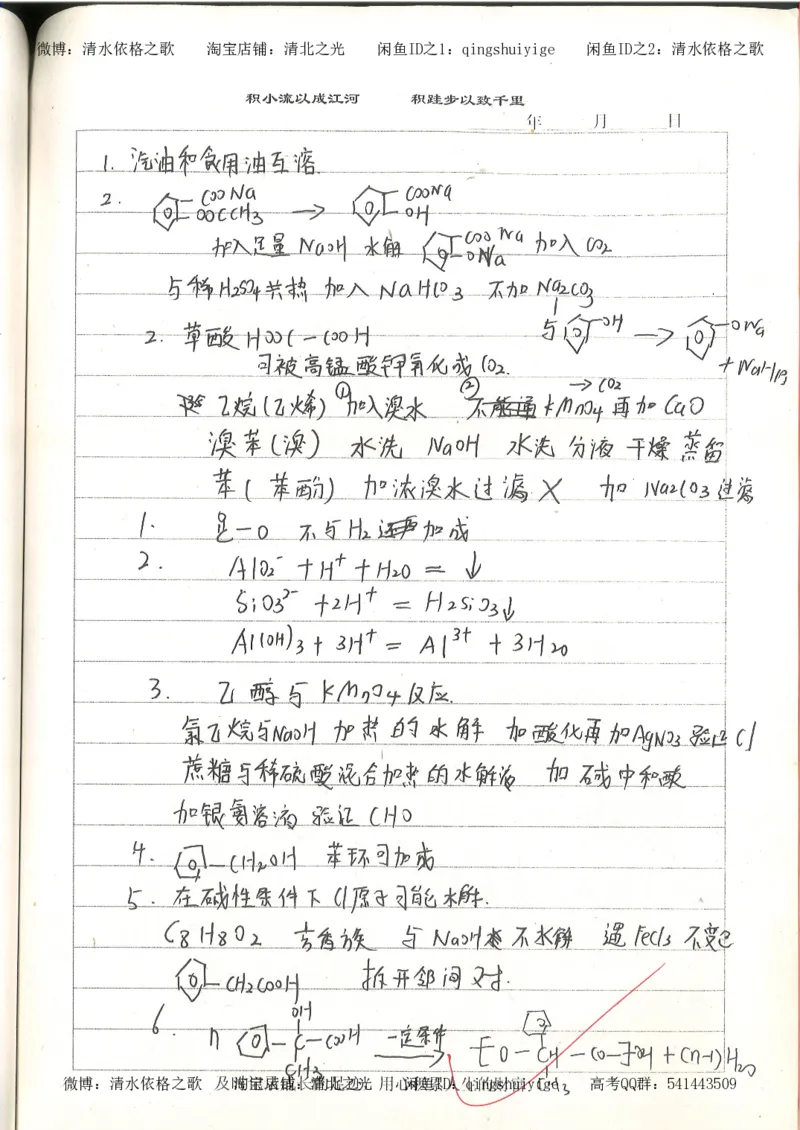 微博：清水依格之歌 淘宝店铺：清北之光 闲鱼ID之1：qingshuiyige 闲鱼ID之2：清水依格之歌
积小流以成江河 积跬步以致千里
年 月 日
1. 汽油和食用油互溶.
2. COONa OOCCH3 → COONa OH
加入足量 NaOH 水解 COONa ONa 加入 CO2
与稀H2SO4共热 加入 NaHCO3 不加 Na2CO3
2. 草酸 HOOC-COOH 与 OH → ONa + NaHCO3
可被高锰酸钾氧化成 CO2.
乙烷(乙烯) ①加入溴水 ② KMnO4 → CO2 再加 CaO
溴苯(溴) 水洗 NaOH 水洗 分液 干燥 蒸馏
苯(苯酚) 加浓溴水过滤 X 加 Na2CO3 过滤
1. 是-O 不与H2 加成
2. AlO2- + H+ + H2O = ↓
SiO3 2- + 2H+ = H2SiO3↓
Al(OH)3 + 3H+ = Al3+ + 3H2O
3. 乙醇与 KMnO4 反应.
氯乙烷与NaOH 加热的水解 加酸化再加AgNO3 验证 Cl
蔗糖与稀硫酸混合加热的水解液 加碱中和酸
加银氨溶液 验证 CHO
4. -CH2OH 苯环可加成
5. 在碱性条件下 Cl原子可能水解.
C8H8O2 芳香族 与 NaOH 不水解 遇 FeCl3 不变色
-CH2COOH 拆开邻间对.
6. n OH -C-COOH CH3 一定条件 → [O-CH-CO-]OH + (n-1)H2O CH3
微博：清水依格之歌 淘宝店铺：清北之光 闲鱼ID qingshuiyige 高考QQ群：541443509